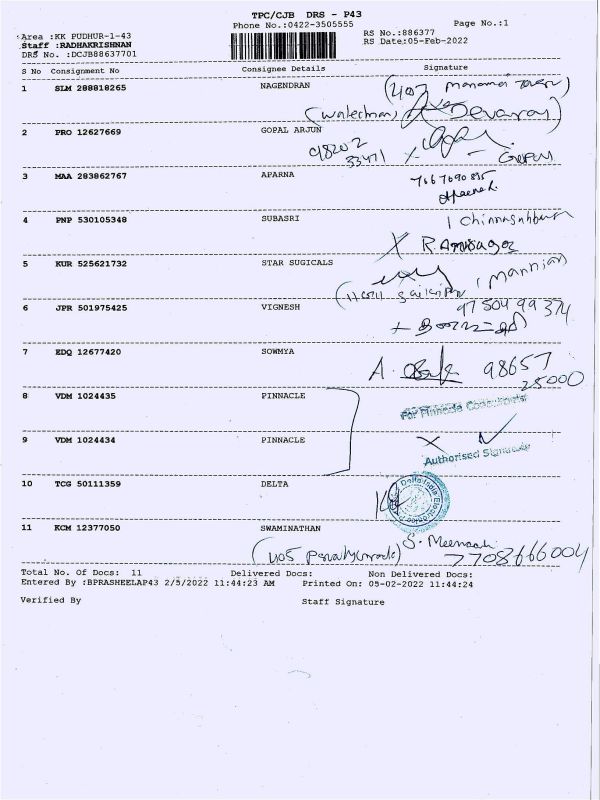 TPC/CJB DRS - P43
Phone No.:0422-3505555
Page No.:1
Area :KK PUDHUR-1-43
RS No.:886377
Staff :RADHAKRISHNAN
RS Date:05-Feb-2022
DRS No. :DCJB88637701
S No Consignment No Consignee Details Signature
1 SLM 288818265 NAGENDRAN
(watchman) Devaraj
2 PRO 12627669 GOPAL ARJUN
98202
33471
3 MAA 283862767 APARNA
7667690835
4 PNP 530105348 SUBASRI
5 KUR 525621732 STAR SUGICALS
6 JPR 501975425 VIGNESH
97504 99374
7 EDQ 12677420 SOWMYA
A. 98657
25000
8 VDM 1024435 PINNACLE
For Pinnacle Consultants
9 VDM 1024434 PINNACLE
Authorised Signatory
10 TCG 50111359 DELTA
11 KCM 12377050 SWAMINATHAN
S. Meenakshi
7708666004
Total No. Of Docs: 11 Delivered Docs: Non Delivered Docs:
Entered By :BPRASHEELAP43 2/5/2022 11:44:23 AM Printed On: 05-02-2022 11:44:24
Verified By Staff Signature